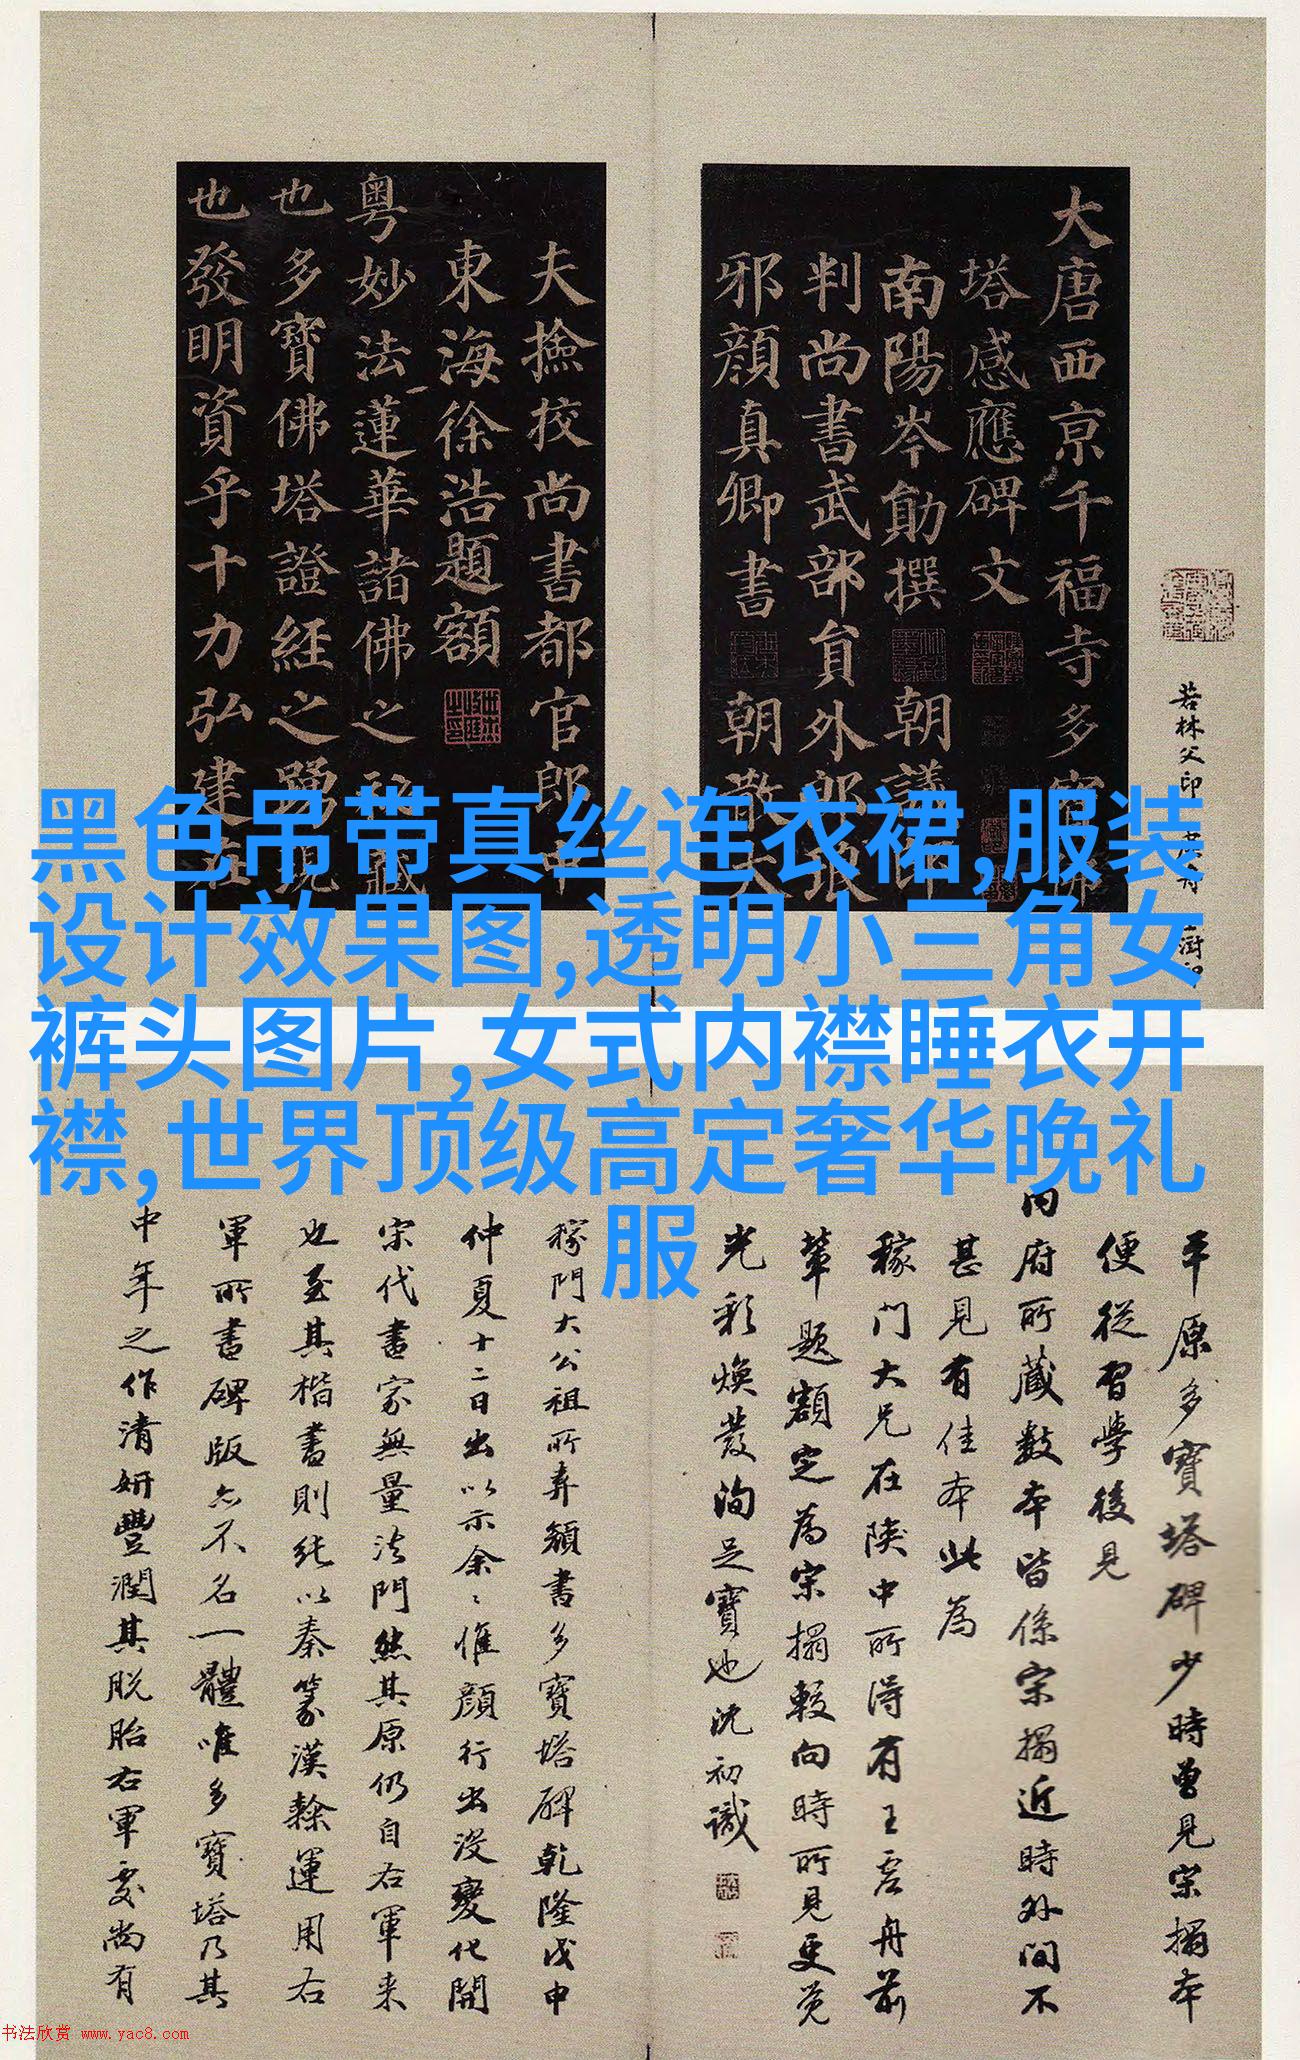 大唐西京千福寺多寶佛
塔感應碑文
南陽岑勛撰
朝議郎
判尚書武部員外郎
邪顏真卿書
朝散大
夫撿挍尚書都官郎中
東海徐浩題額
粵妙法蓮華諸佛之祕藏
也多寶佛塔證經之踴現
也發明資乎十力弘建在
若林父印
黑色吊带真丝连衣裙,服装
设计效果图,透明小三角女
裤头图片,女式内襟睡衣开
襟,世界顶级高定奢华晚礼
服
平原多寶塔碑少時曾見宋搨本
便從習學後見
内府所藏數本皆係宋搨近時外間不
甚見有佳本此為
稼门大兄在陝中所得有王虛舟前
輩題額定為宋搨較向時所見更覺
光彩煥發洵足寶也沈初識
稼門大公祖所弆顏書多寶塔碑乾隆戊申
仲夏十二日出以示余余惟顏行出沒變化開
宋代書家無量法門然其原仍自右軍来
也至其楷書則純以秦篆漢隸運用右
軍所書碑版亦不名一體唯多寶塔乃其
中年之作清妍豐潤其脱胎右軍處尚有
书法欣赏 www.yac8.com